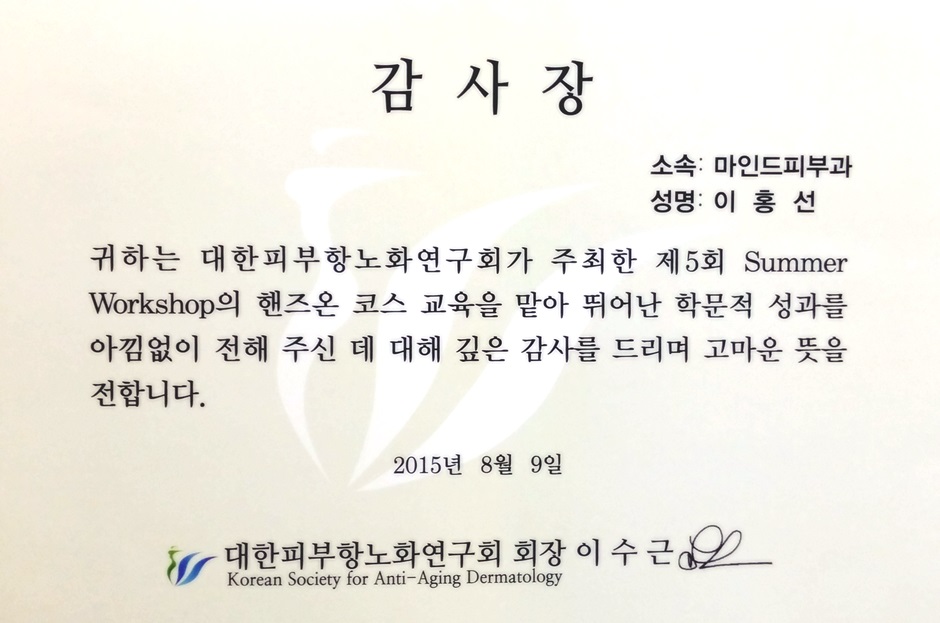 감 사 장
소속: 마인드피부과
성명: 이 홍 선
귀하는 대한피부항노화연구회가 주최한 제5회 Summer
Workshop의 핸즈온 코스 교육을 맡아 뛰어난 학문적 성과를
아낌없이 전해 주신 데 대해 깊은 감사를 드리며 고마운 뜻을
전합니다.
2015년 8월 9일
대한피부항노화연구회 회장 이 수 근
Korean Society for Anti-Aging Dermatology